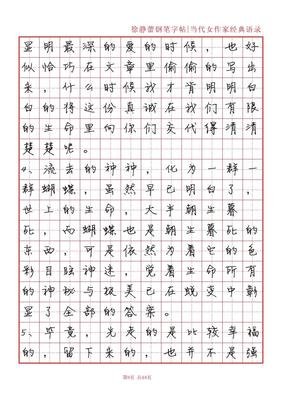 徐静蕾钢笔字帖|当代女作家经典语录
显明最深的爱的时候，也好
似恰巧在文章里偷偷的写出
来，什么时候我才肯明明白
白的将这份真诚在我们有限
的生命里向你们交代得清清
楚楚呢。
4、流去的神神，化为一群一
群蝴蝶，虽然早已明白了，
世上的生命，大半朝生暮
死，而蝴蝶也是朝生暮死的
东西，可是依然为着它的色
彩目眩神迷，觉着生命所有
的神秘与极美已在蜕变中彰
显了全部的答案。
5、毕竟，先走的是比较幸福
的，留下来的，也并不是强
第8页 共44页